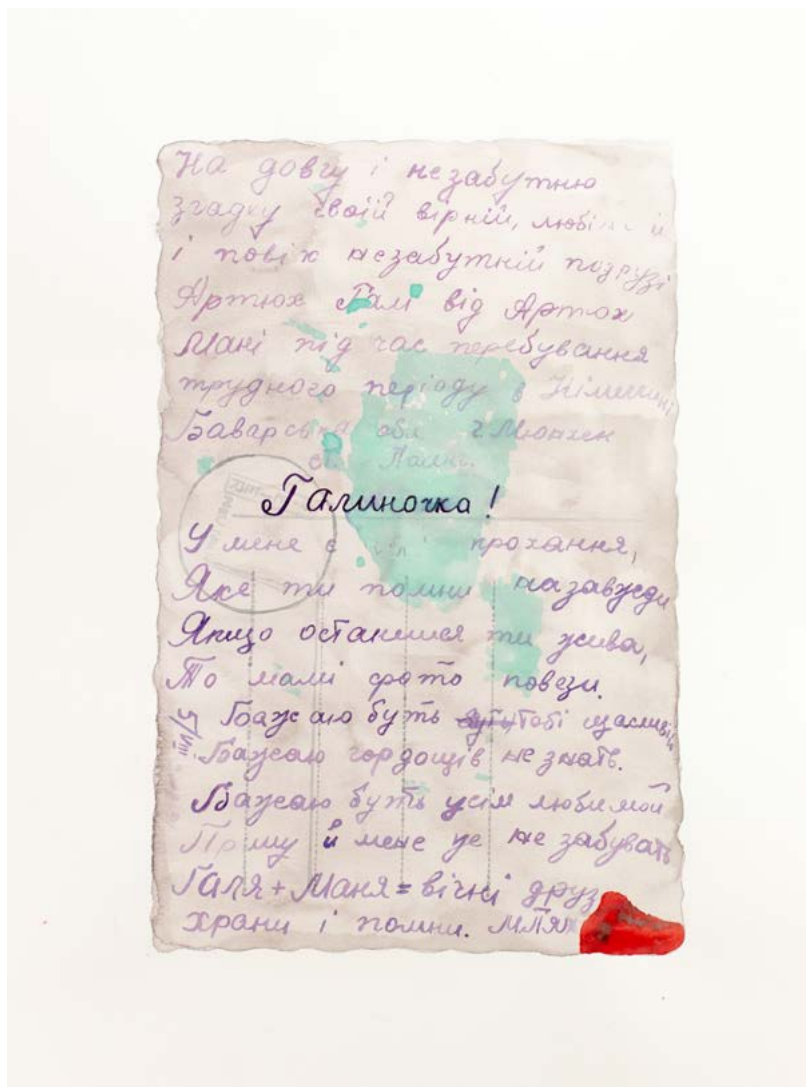 На довгу і незабутню
згадку своїй вірній,
і повік незабутній подрузі
Артюх Галі від Артюх
Мані під час перебування
трудного періоду в Німеччині
Баварська обл г. Мюнхен
Галиночка!
У мене є прохання,
Яке ти помни назавжди
Якщо останешся ти жива,
То мамі фото повези.
5/VIII Бажаю буть Тобі щасливій
Бажаю гордощів не знать.
Бажаю буть усім любимой
Прошу й мене це не забувать
Галя + Маня = вічні друз
храни і помни.